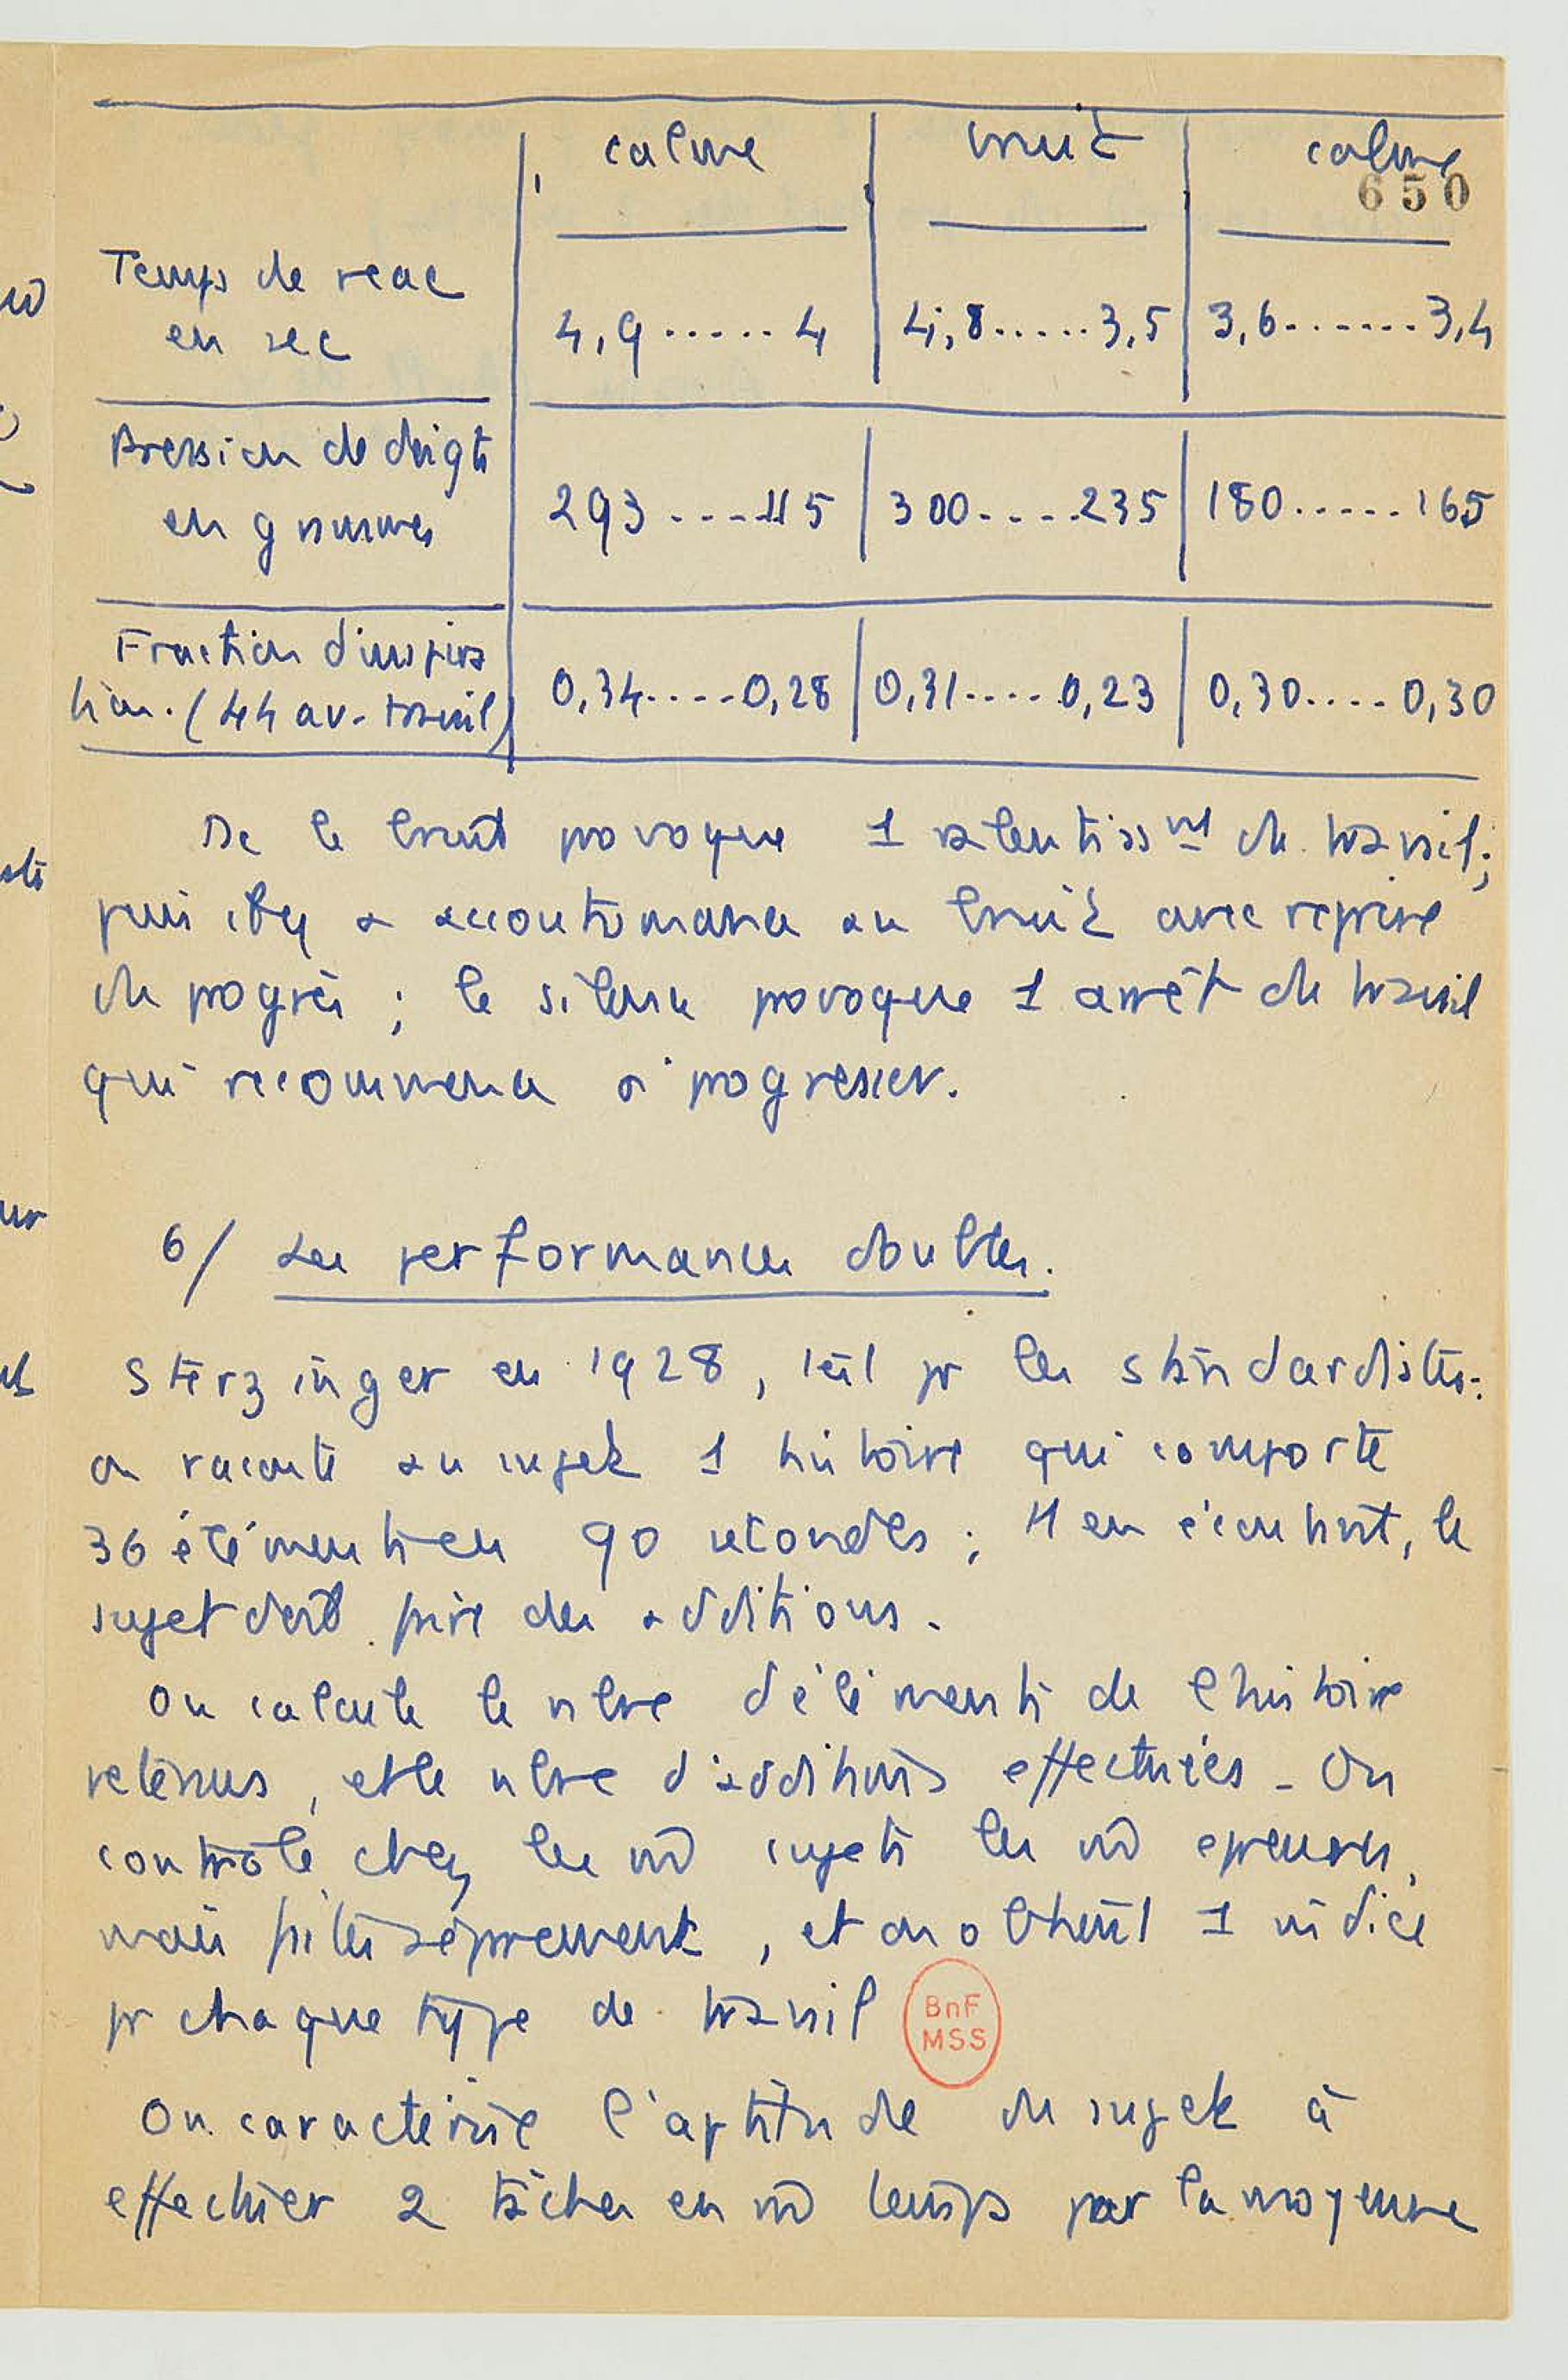 calme bruit calme
650
Temps de reac
en sec
4,9......4 4,8.....3,5 3,6.......3,4
Pression de doigts
en grammes
293....115 300....235 180.....165
Fraction d'inspira
tion. (44 av. travail)
0,34....0,28 0,31....0,23 0,30....0,30
Dc le bruit provoque 1 ralentissmt du travail;
puis il y a accoutumance au bruit avec reprise
du progrès ; le silence provoque 1 arrêt du travail
qui recommence à progresser.
6/ Les performances doubles.
Sterzinger en 1928, test pr les standardistes:
on raconte au sujet 1 histoire qui comporte
36 éléments en 90 secondes ; en écoutant, le
sujet doit faire des additions.
On calcule le nbre d'éléments de l'histoire
retenus, et le nbre d'additions effectuées - On
contrôle chez les m̂ sujets les m̂ epreuves,
mais faites séparement, et on obtient 1 indice
pr chaque type de travail
BnF
MSS
On caractérise l'aptitude du sujet à
effectuer 2 tâches en m̂ temps par la moyenne